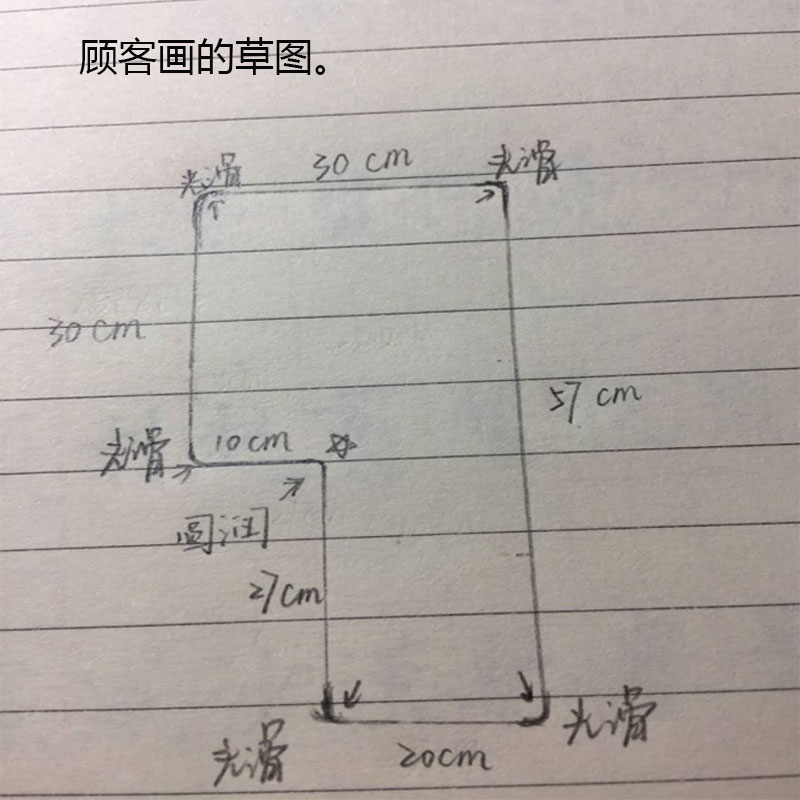 顾客画的草图。
光滑
30 cm
光滑
30 cm
57 cm
光滑
10 cm
圆润
27cm
光滑
20cm
光滑